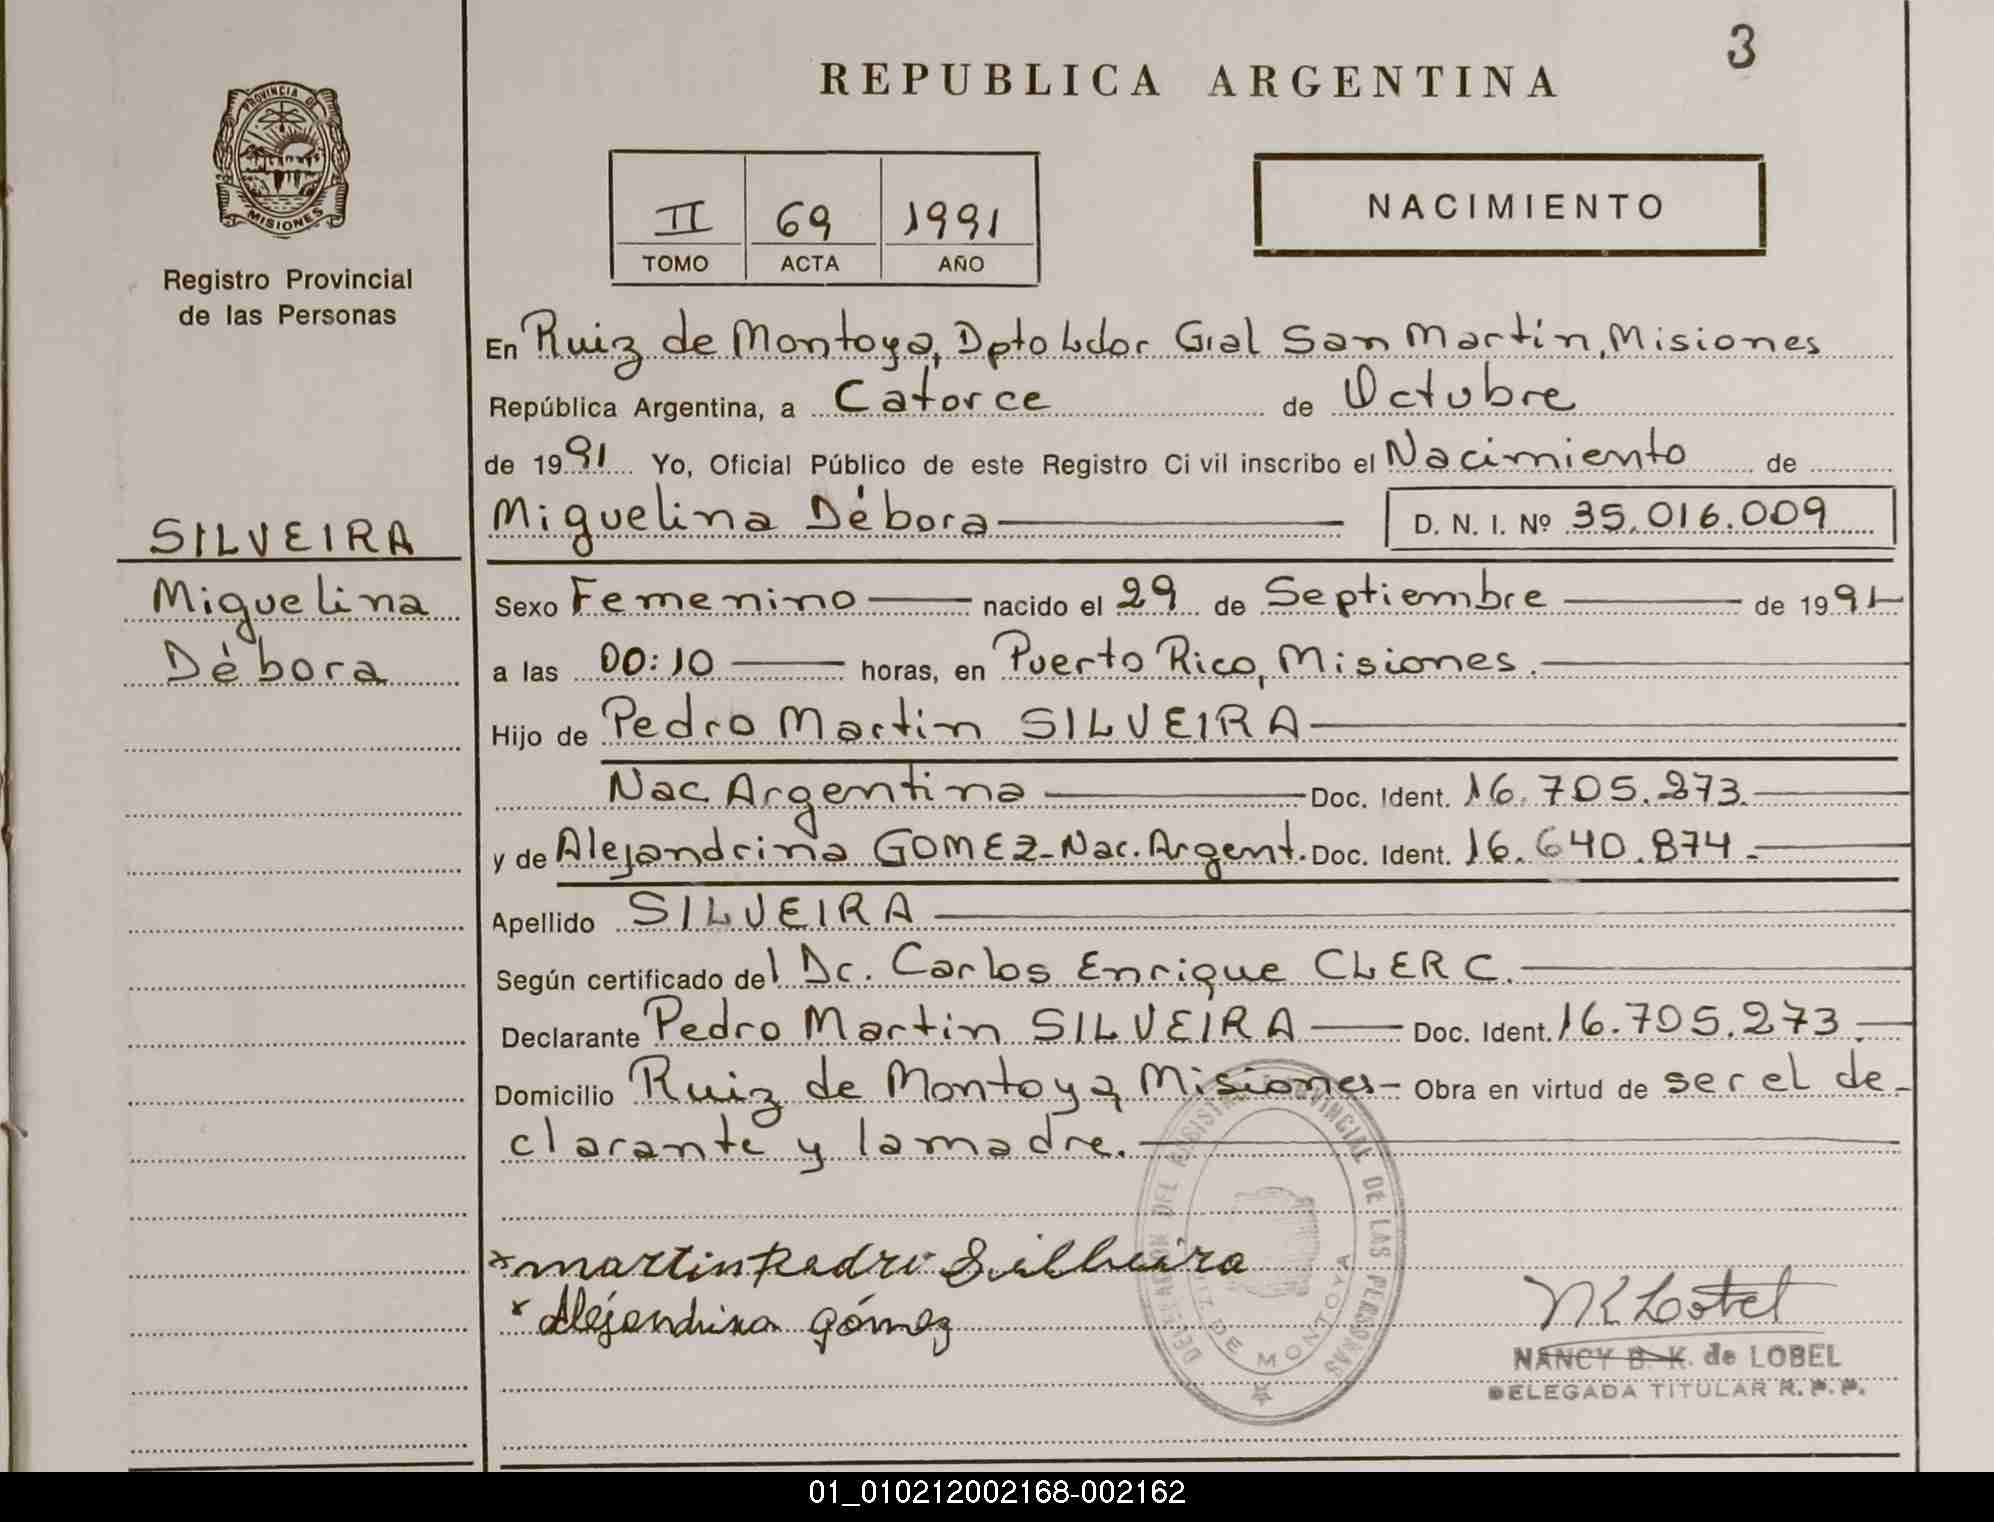 3
REPUBLICA ARGENTINA
PROVINCIA DE
MISIONES
Registro Provincial
de las Personas
II 69 1991
TOMO ACTA AÑO
NACIMIENTO
En Ruiz de Montoya, Dpto Ldor Gral San Martín, Misiones
República Argentina, a Catorce de Octubre
de 1991 Yo, Oficial Público de este Registro Civil inscribo el Nacimiento de
Miguelina Débora D. N. I. Nº 35.016.009
SILVEIRA
Miguelina
Débora
Sexo Femenino nacido el 29 de Septiembre de 1991
a las 00:10 horas, en Puerto Rico, Misiones.
Hijo de Pedro Martin SILVEIRA
Nac Argentina Doc. Ident. 16.705.273.
y de Alejandrina GOMEZ-Nac. Argent. Doc. Ident. 16.640.874.
Apellido SILVEIRA
Según certificado del Dr. Carlos Enrique CLERC.
Declarante Pedro Martin SILVEIRA Doc. Ident. 16.705.273.
Domicilio Ruiz de Montoya, Misiones- Obra en virtud de ser el de-
clarante y la madre.
martin Pedro Silbeira
Alejandrina gómez
PROVINCIAL DE LAS PERSONAS
DE MONTOYA
NANCY B. K. de LOBEL
DELEGADA TITULAR R. P. P.
01_010212002168-002162